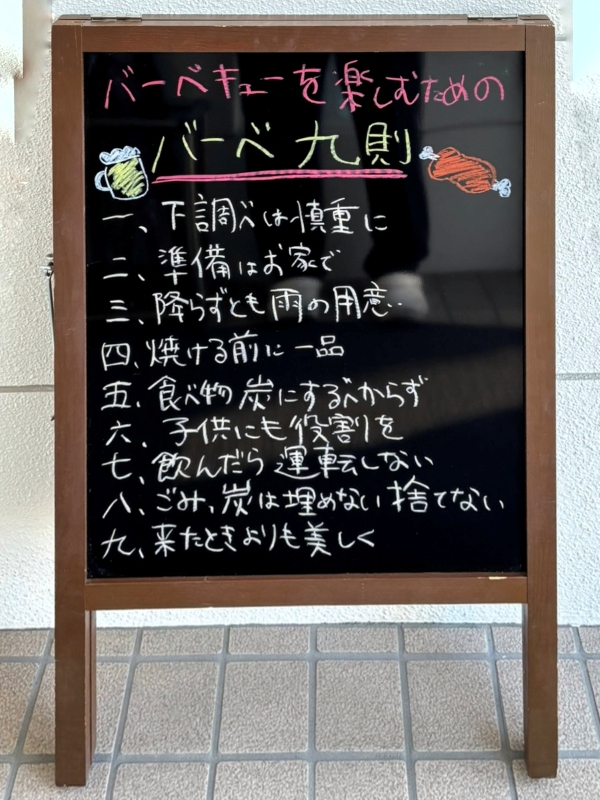 バーベキューを楽しむための
バーベ九則
一、下調べは慎重に
二、準備はお家で
三、降らずとも雨の用意‥
四、焼ける前に一品
五、食べ物炭にするべからず
六、子供にも役割を
七、飲んだら運転しない
八、ごみ、炭は埋めない捨てない
九、来たときよりも美しく